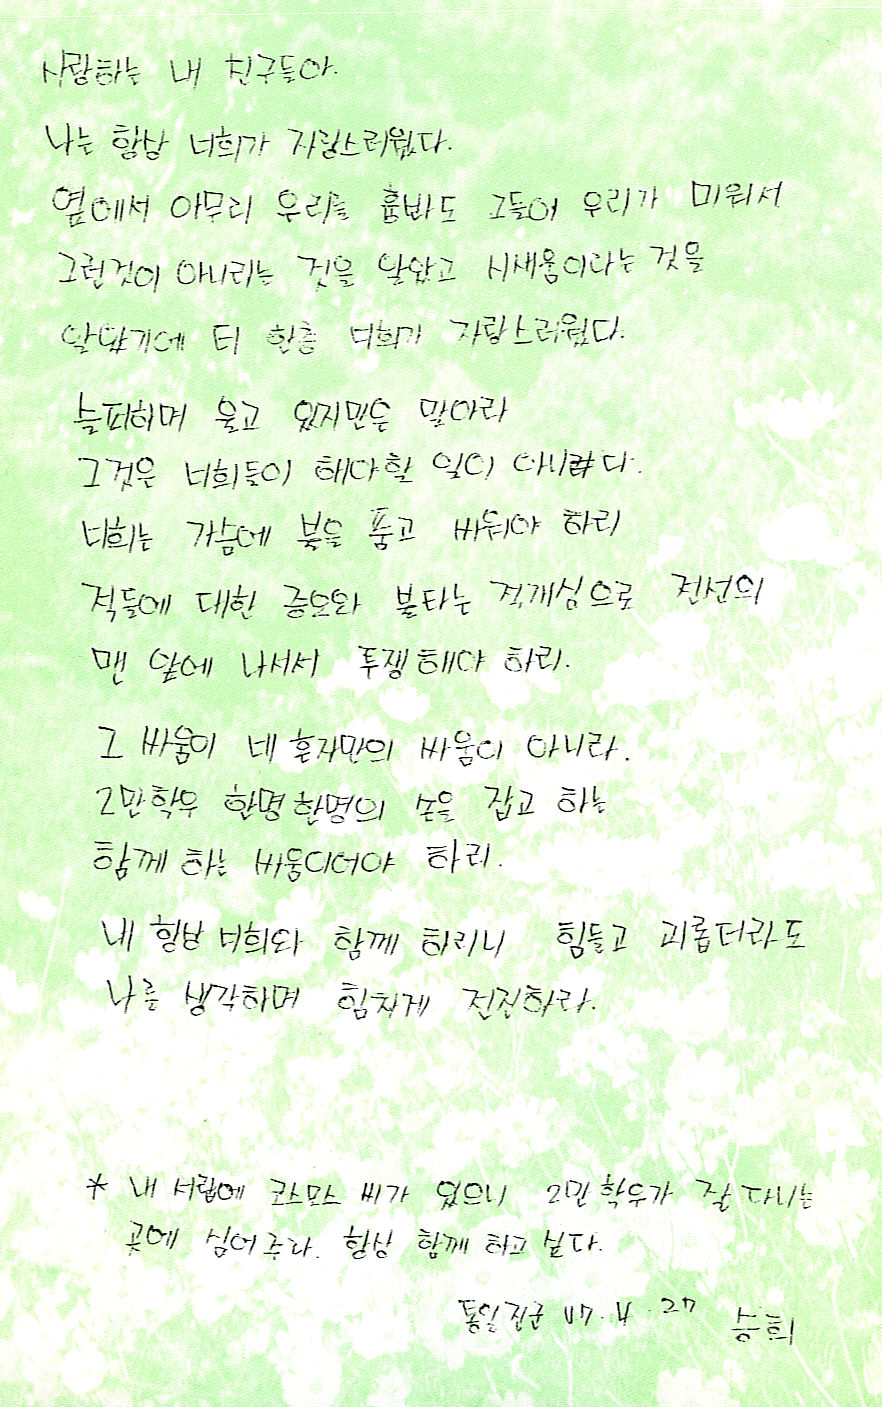 사랑하는 내 친구들아.
나는 항상 너희가 자랑스러웠다.
옆에서 아무리 우리를 흠봐도 그들이 우리가 미워서
그런것이 아니라는 것을 알았고 시새움이라는 것을
알았기에 더 한층 너희가 자랑스러웠다.
슬퍼하며 울고 있지만은 말아라
그것은 너희들이 해야할 일이 아니다.
너희는 가슴에 불을 품고 싸워야 하리
적들에 대한 증오와 불타는 적개심으로 전선의
맨 앞에 나서서 투쟁해야 하리.
그 싸움이 네 혼자만의 싸움이 아니라.
2만학우 한명한명의 손을 잡고 하는
함께 하는 싸움이어야 하리.
내 항상 너희와 함께 하리니 힘들고 괴롭더라도
나를 생각하며 힘차게 전진하라.
* 내 서랍에 코스모스 씨가 있으니 2만학우가 잘 다니는
곳에 심어주라. 항상 함께 하고 싶다.
통일진군 47. 4. 27 승희